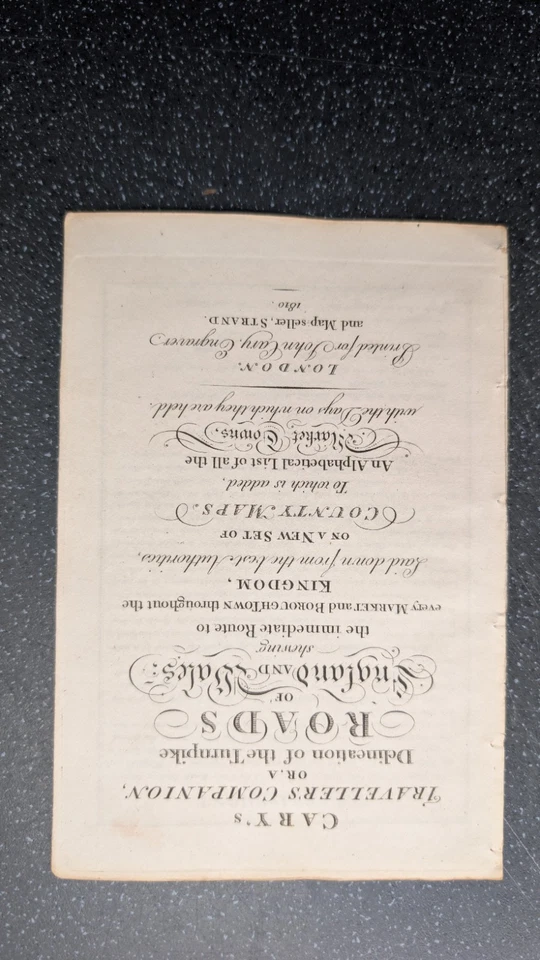 CARY'S
TRAVELLER'S COMPANION,
OR, A
Delineation of the Turnpike
ROADS
OF
England AND Wales:
shewing
the immediate Route to
every MARKET and BOROUGH TOWN throughout the
KINGDOM,
Laid down from the best Authorities,
ON A NEW SET OF
COUNTY MAPS.
To which is added,
An Alphabetical List of all the
Market Towns,
with the Days on which they are held.
LONDON.
Printed for John Cary, Engraver
and Map seller, STRAND.
1810.